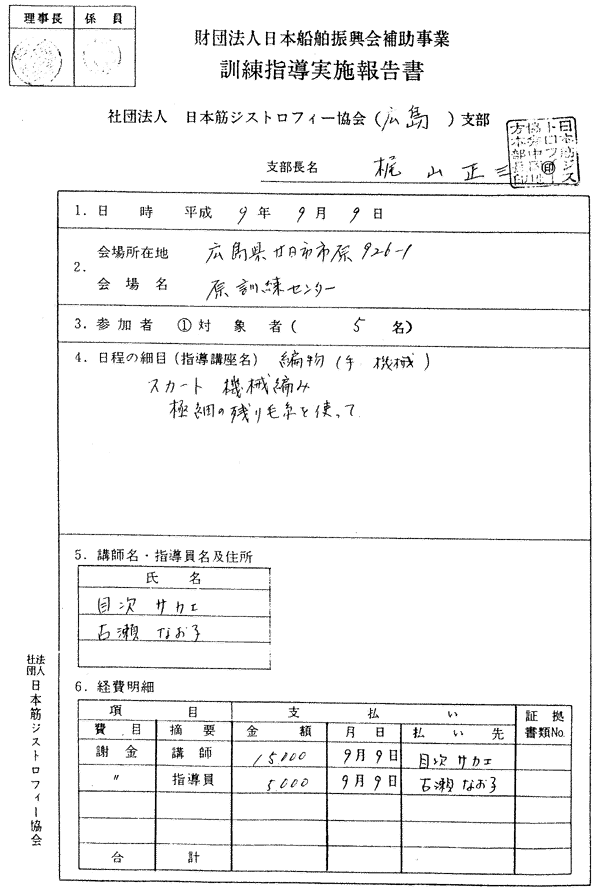 理事長 係員
財団法人日本船舶振興会補助事業
訓練指導実施報告書
社団法人 日本筋ジストロフィー協会(広島)支部
支部長名 梶山正三
1. 日時 平成9年9月9日
2. 会場所在地 広島県廿日市市原926-1
会場名 原訓練センター
3. 参加者 ①対象者(5名)
4. 日程の細目(指導講座名) 編物(手 機械)
スカート 機械編み
極細の残り毛糸を使って
5. 講師名・指導員名及住所
氏名
目次 サカエ
古瀬 なお子
6. 経費明細
項目 支払い 証拠書類No.
費目 摘要 金額 月日 払い先
謝金 講師 15000 9月9日 目次 サカエ
〃 指導員 5000 9月9日 古瀬 なお子
合計
社団法人 日本筋ジストロフィー協会